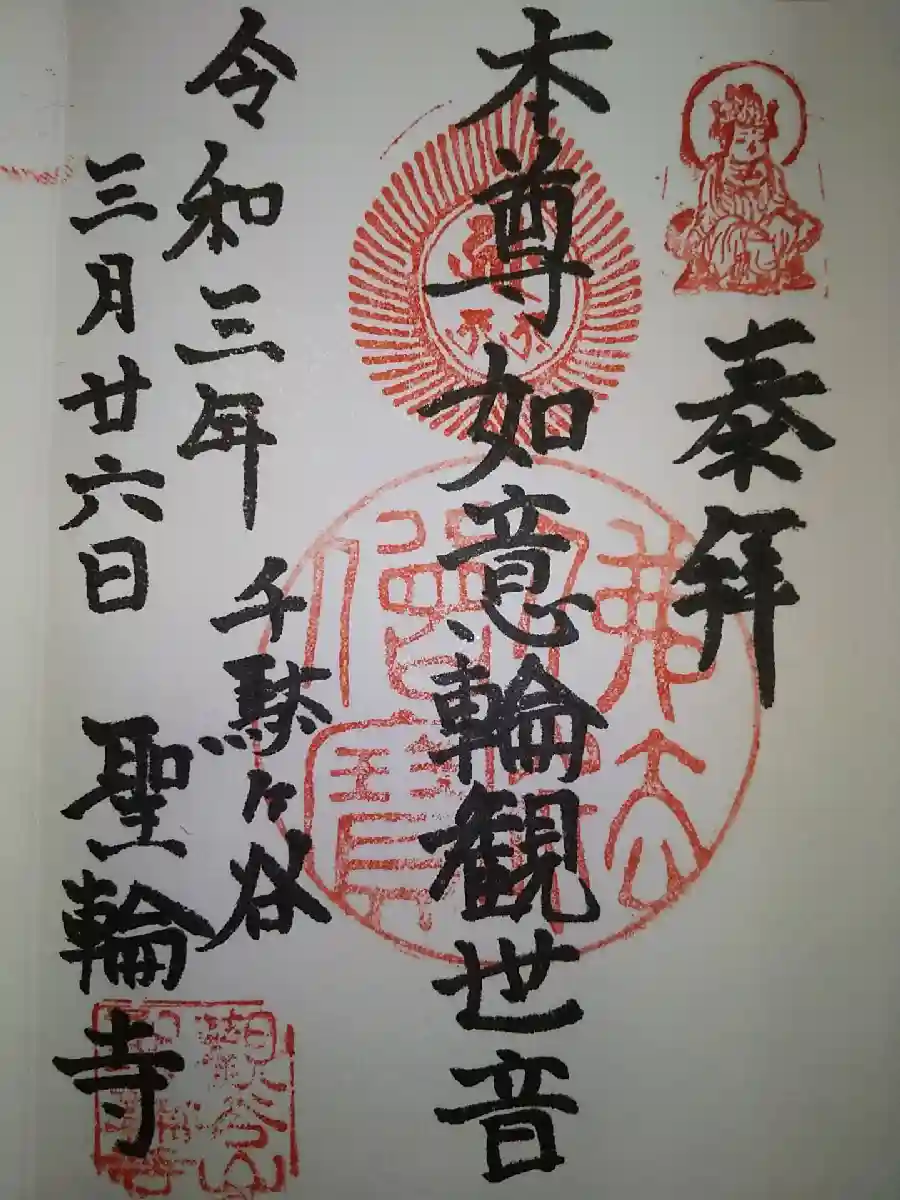 奉拝
本尊如意輪観世音
令和三年
千駄ヶ谷
三月廿六日
聖輪寺